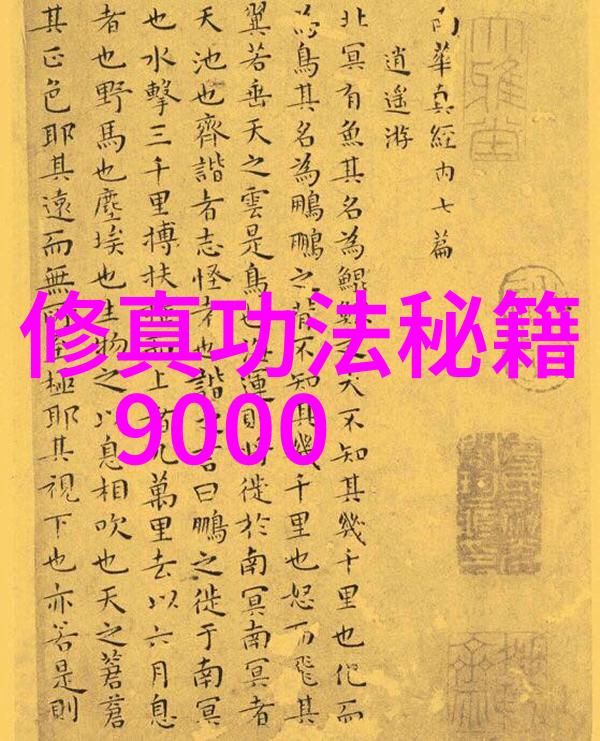 修真功法秘籍
9000
南華真經内七篇
逍遥游
北冥有魚其名為鯤鯤之大不知其幾千里也化而
為鳥其名為鵬鵬之背不知其幾千里也怒而飛其
翼若垂天之雲是鳥也海運則將徙於南冥南冥者
天池也齊諧者志怪者也諧之言曰鵬之徙于南冥
也水擊三千里搏扶摇而上者九萬里去以六月息
者也野馬也塵埃也生物之以息相吹也天之蒼蒼
其正色耶其遠而無所至極耶其視下也亦若是則